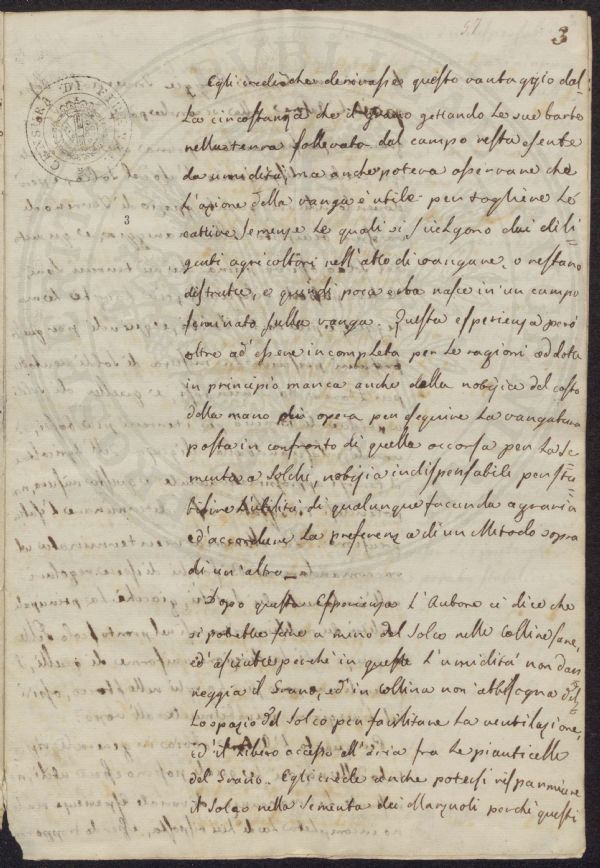 57
3
Egli crede che derivasse questo vantaggio dal-
la circostanza che il grano gettando le sue barbe
nella terra sollevata dal campo resta esente
da umidità, ma anche poteva osservare che
l'azione della vanga è utile per togliere le
cattive semenze le quali si scielgono dai dili-
genti agricoltori nell'atto di vangare, o restano
distrutte, e quindi poca erba nasce in un campo
seminato sulla vanga. Questa esperienza però
oltre ad' essere incompleta per le ragioni addotte
in principio manca anche della notizia del costo
della mano di opera per eseguire la vangatura
posta in confronto di quella occorsa per la Se-
menta a Solchi, notizia indispensabile per sta-
bilire l'utilità di qualunque facenda agraria
ed' accordare la preferenza di un Metodo sopra
di un' altro
Dopo questa Esperienza l'Autore ci dice che
si potrebbe fare a meno del Solco nelle Colline sane,
ed' asciutte perchè in queste l'umidità non dan-
neggia il Grano, ed' in collina non abbisogna del-
lo spazio del Solco per facilitare la ventilazione,
ed il libero accesso all'aria fra le pianticelle
del Grano. Egli crede anche potersi risparmiare
il Solco nella Sementa dei Marzuoli perchè questi
3